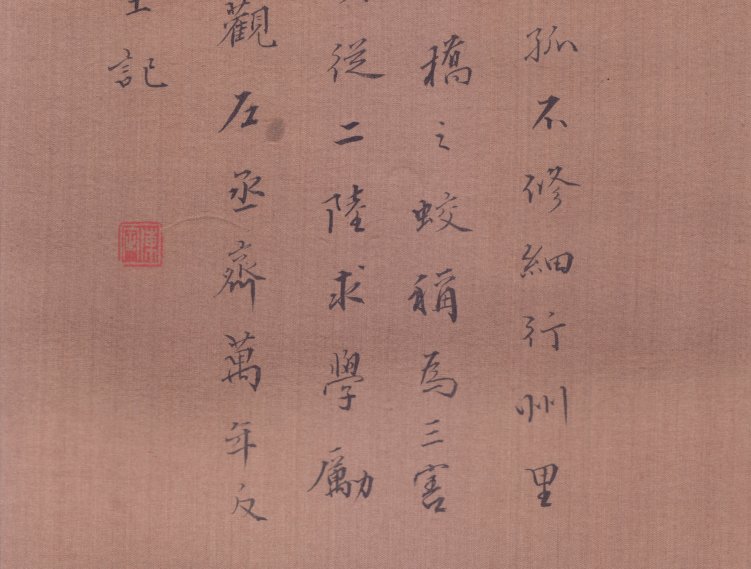 孤不修細行州里
橋之蛟稱為三害
從二陸求學勵
觀左丞齊萬年反
記